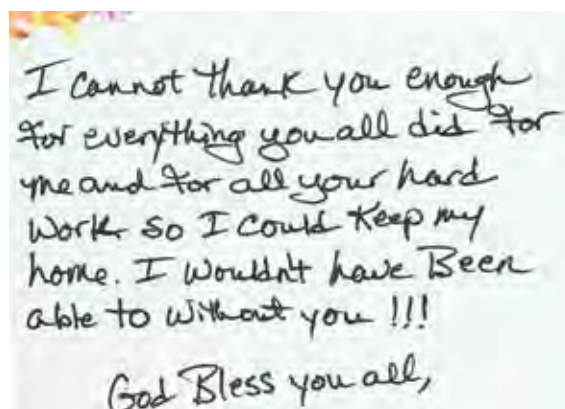 I cannot thank you enough
for everything you all did for
me and for all your hard
work so I could keep my
home. I wouldn't have Been
able to without you !!!
God Bless you all,